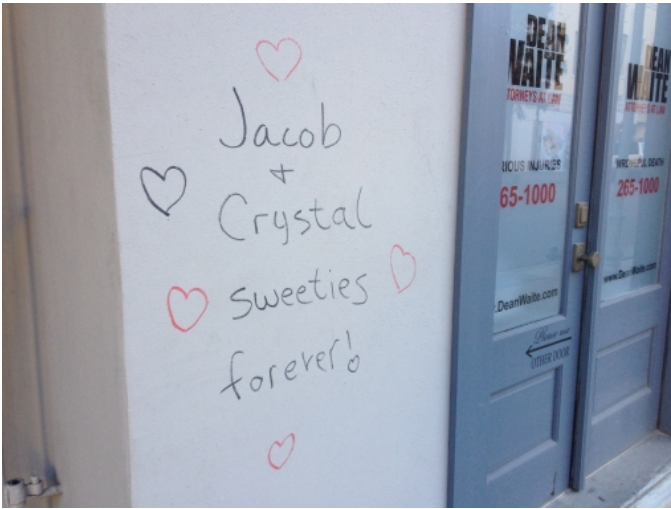 Jacob
+
Crystal
sweeties
forever!
DEAN
WAITE
TORNEYS AT LAW
IOUS INJURIES
65-1000
.DeanWaite.com
Please use
OTHER DOOR
EAN
WAITE
ATTORNEYS AT LAW
WRONGFUL DEATH
265-1000
www.DeanWaite.com